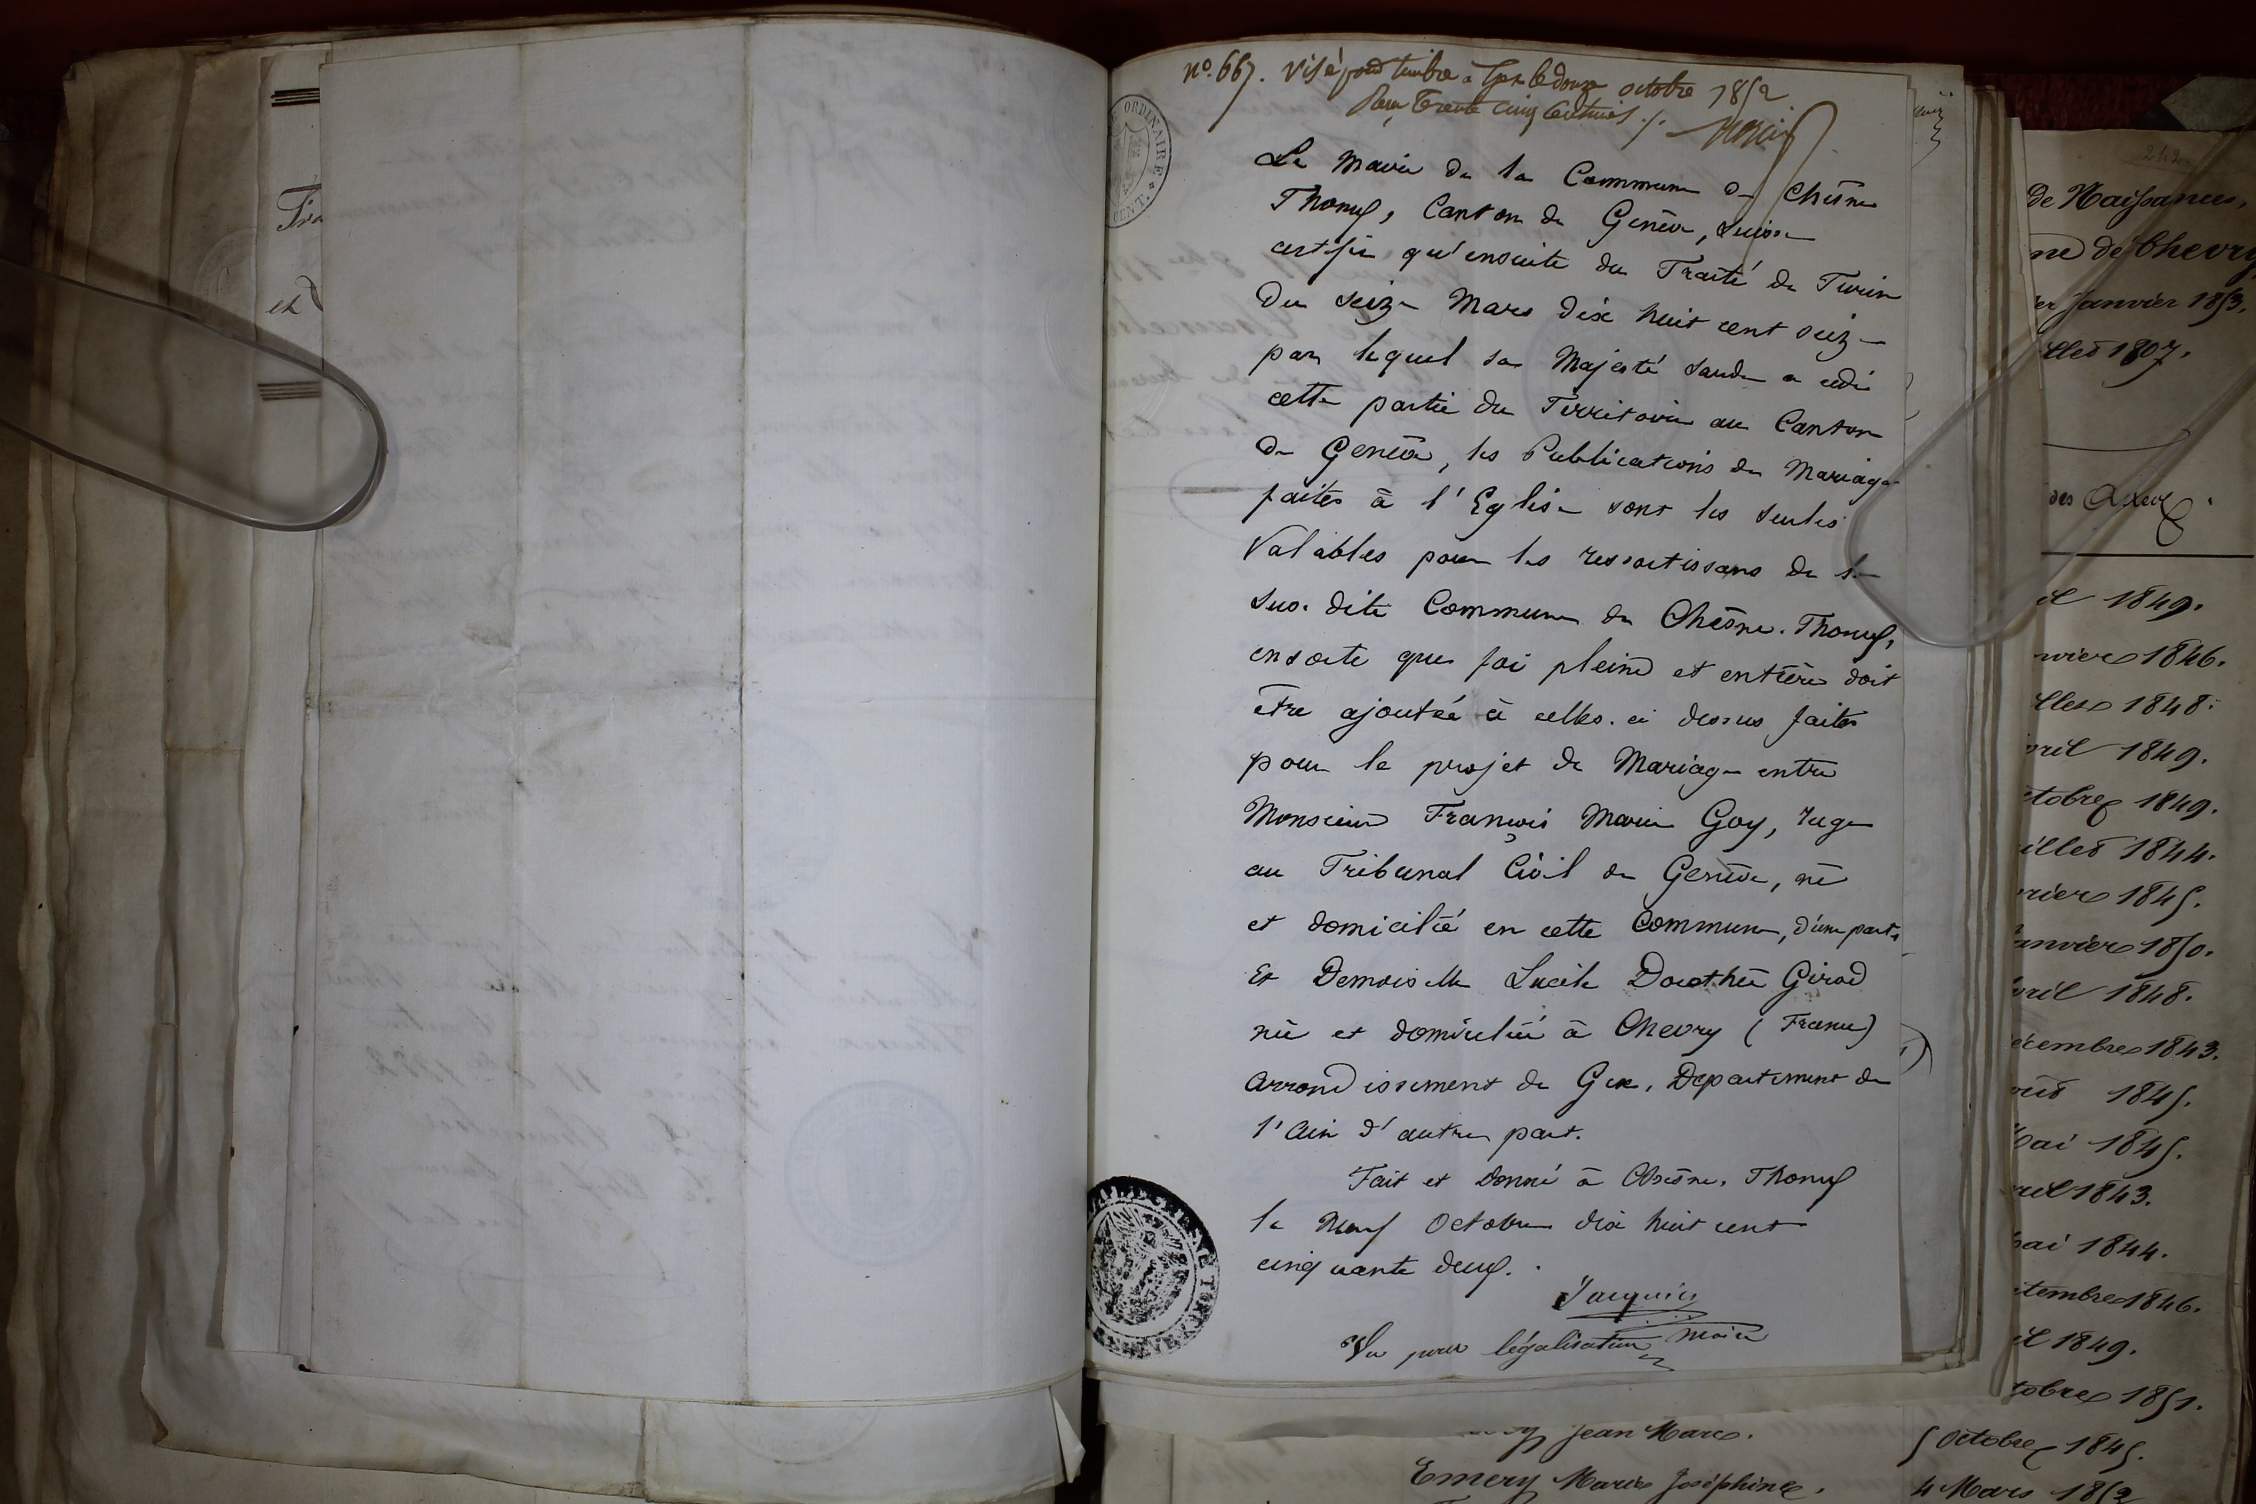 no. 667. Visé pour timbre à Gex le douze octobre 1852
Pour Trente cinq Centimes
Le Maire de la Commune de Chêsne
Thonex, Canton de Genève, Suisse
certifie qu'ensuite du Traité de Turin
du seize Mars dix huit cent seize
par lequel sa Majesté Sarde a cédé
cette partie du Territoire au Canton
de Genève, les Publications de Mariage
faites à l'Eglise sont les seules
Valables pour les ressortissans de la
sus-dite Commune de Chêsne-Thonex,
ensorte que foi pleine et entière doit
être ajoutée à celles-ci dessus faites
pour le projet de Mariage entre
Monsieur François Marie Goy, Juge
au Tribunal Civil de Genève, né
et domicilié en cette Commune, d'une part,
Et Demoiselle Lucile Dorothée Girod
née et domiciliée à Chevry (France)
arrondissement de Gex, Departement de
l'Ain d'autre part.
Fait et donné à Chêsne-Thonex
le Neuf Octobre dix huit cent
cinquante deux.
Maire
Vu pour légalisation
ORDINAIRE
CENT.
de Naissances,
ne de Chevry
er Janvier 1853.
llet 1807.
des Actes
il 1849.
nvier 1846.
llet 1848.
vril 1849.
ctobre 1849.
uillet 1844.
vrier 1845.
anvier 1850.
vril 1848.
écembre 1843.
oût 1845.
Mai 1845.
vril 1843.
mai 1844.
ptembre 1846.
il 1849.
tobre 1851.
Jean Marc. 5 Octobre 1845.
Emery Marie Joséphine. 4 Mars 1852